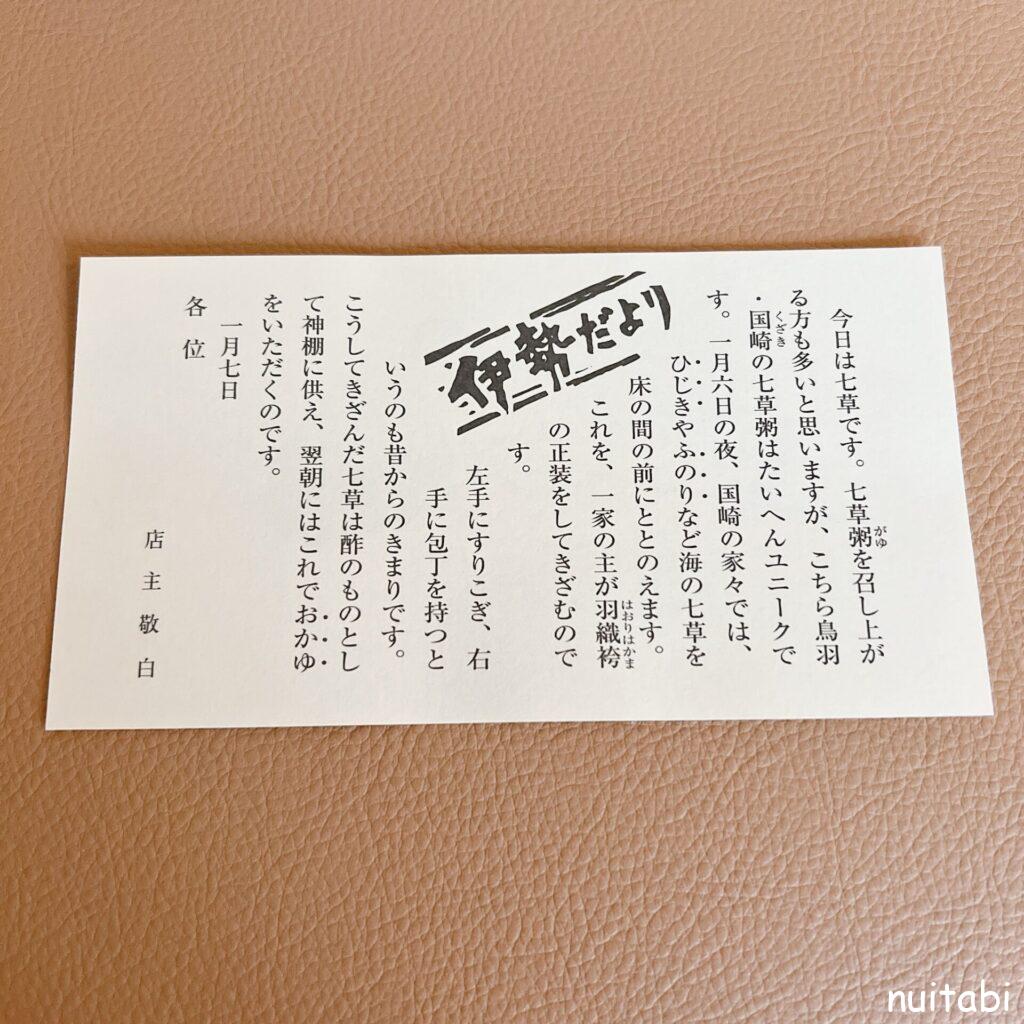 今日は七草です。七草粥を召し上が
る方も多いと思いますが、こちら鳥羽
・国崎の七草粥はたいへんユニークで
す。一月六日の夜、国崎の家々では、
ひじきやふのりなど海の七草を
床の間の前にととのえます。
これを、一家の主が羽織袴
の正装をしてきざむので
す。
伊勢だより
左手にすりこぎ、右
手に包丁を持つと
いうのも昔からのきまりです。
こうしてきざんだ七草は酢のものとし
て神棚に供え、翌朝にはこれでおかゆ
をいただくのです。
一月七日
各位
店主敬白
がゆ
くざき
はおりはかま
nuitabi